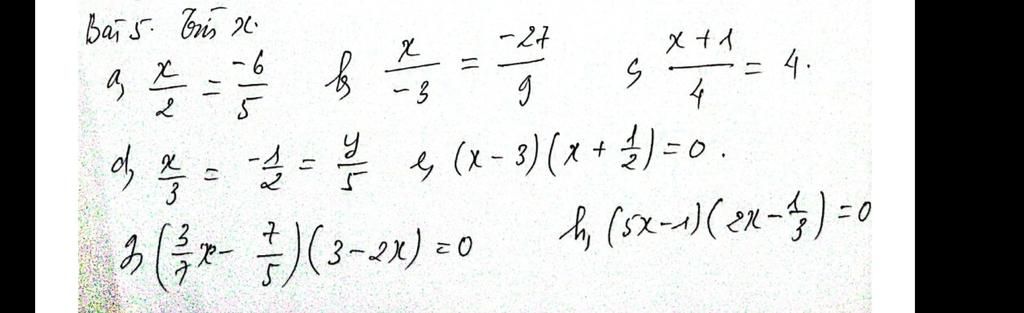 Bài 5. Tìm x.
a, x/2 = -6/5 b, x/-3 = -27/9 c, x+1/4 = 4.
d, x/3 = -1/2 = y/5 e, (x - 3)(x + 1/2) = 0.
g, (3/7x - 7/5)(3 - 2x) = 0 h, (5x - 1)(2x - 1/3) = 0